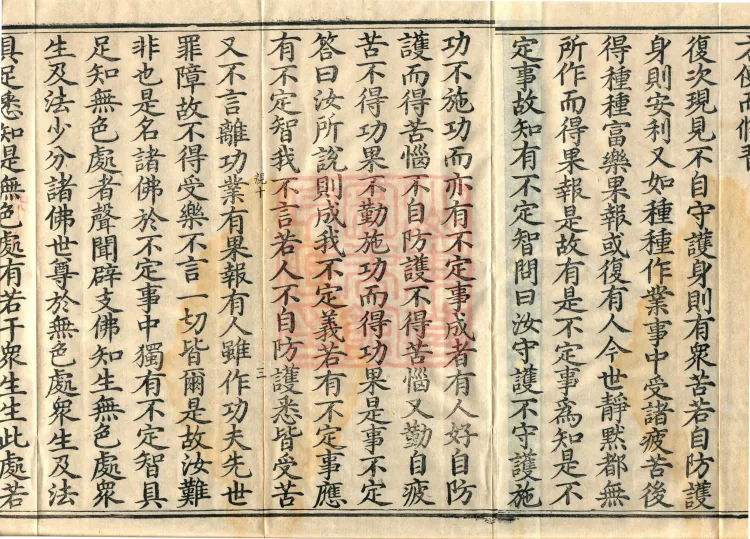 復次現見不自守護身則有衆苦若自防護
身則安利又如種種作業事中受諸疲苦後
得種種富樂果報或復有人今世靜默都無
所作而得果報是故有是不定事為知是不
定事故知有不定智問曰汝守護不守護施
功不施功而亦有不定事成者有人好自防
護而得苦惱不自防護不得苦惱又勤自疲
苦不得功果不勤施功而得功果是事不定
答曰汝所說則成我不定義若有不定事應
有不定智我不言若人不自防護悉皆受苦
十 三
又不言離功業有果報有人雖作功夫先世
罪障故不得受樂不言一切皆爾是故汝難
非也是名諸佛於不定事中獨有不定智具
足知無色處者聲聞辟支佛知生無色處衆
生及法少分諸佛世尊於無色處衆生及法
具足悉知是無色處有若干衆生生此處若